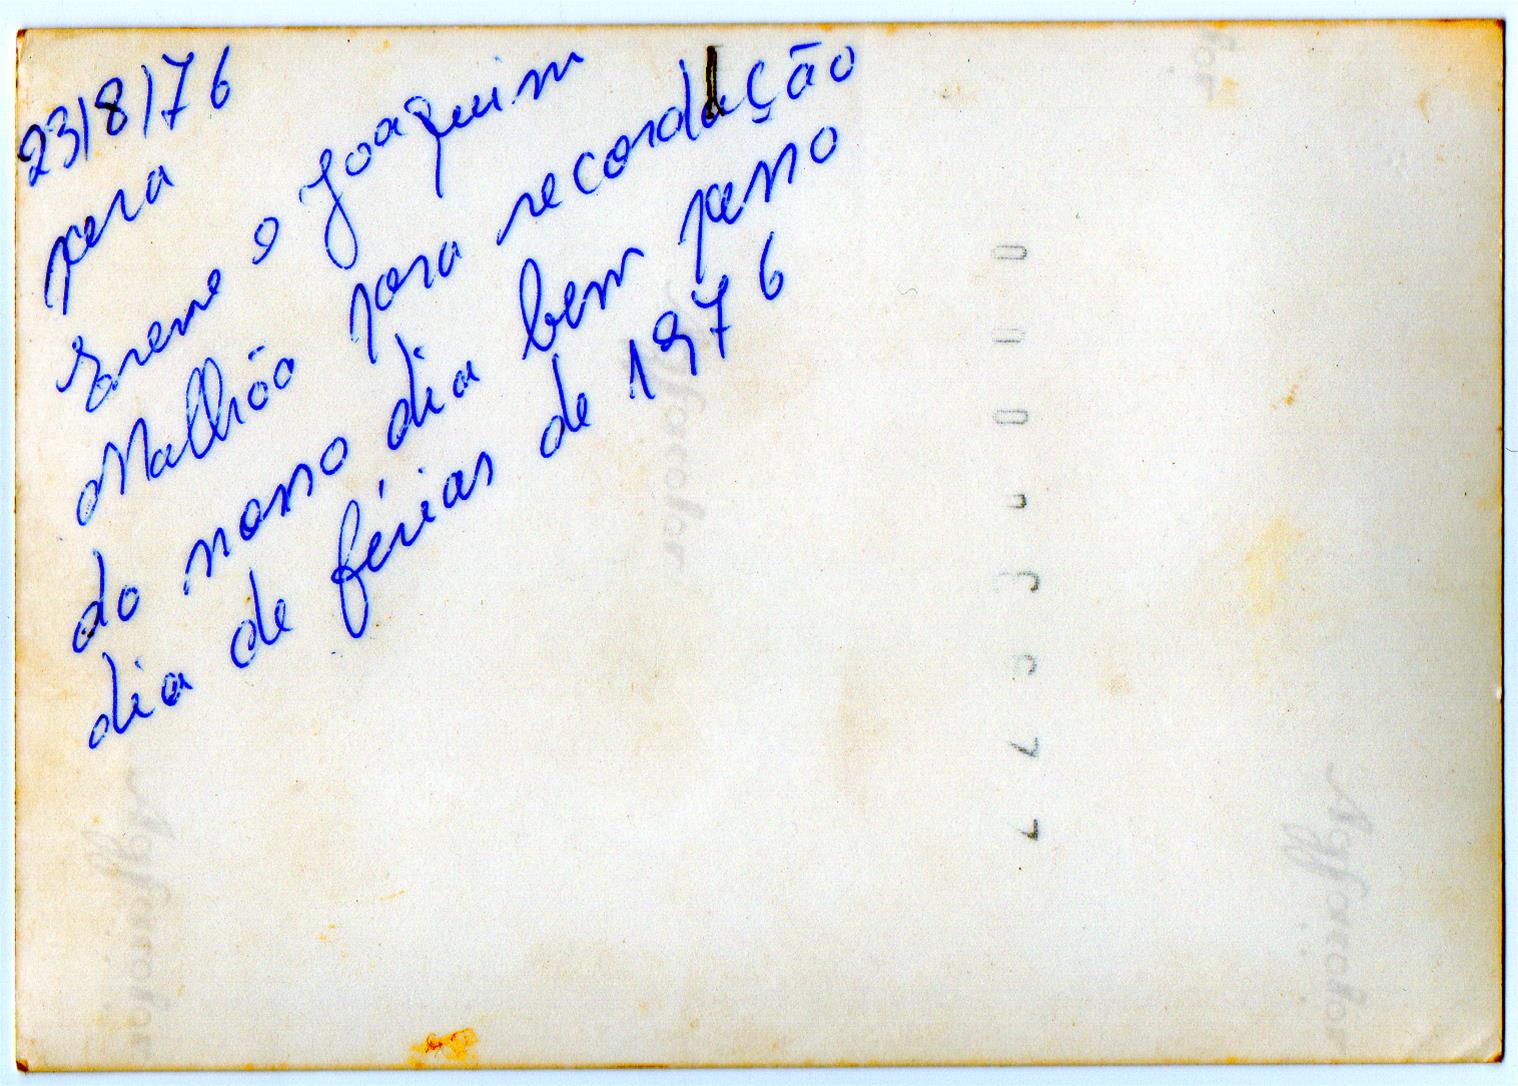 23/8/76
para
Ereme o Joaquim
Malhão para recordação
do nosso dia bem passo
dia de férias de 1976
Agfacolor
Agfacolor
Agfacolor